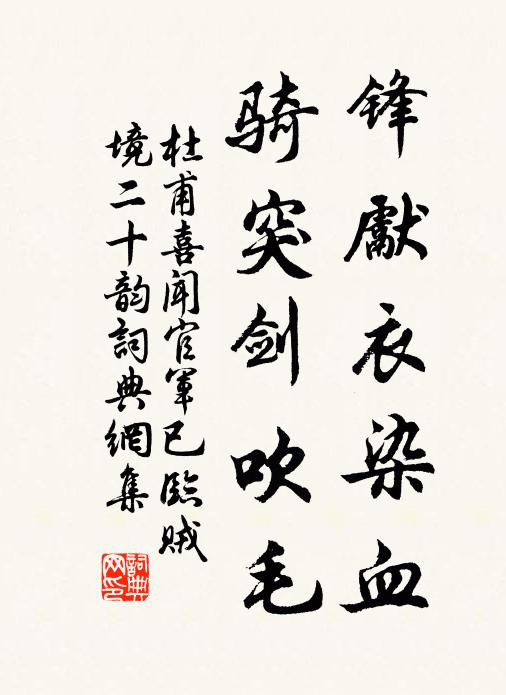 锋獻衣染血
骑突剑吹毛
杜甫喜闻官军已臨贼
境二十韵詞典網集
詞典
网印